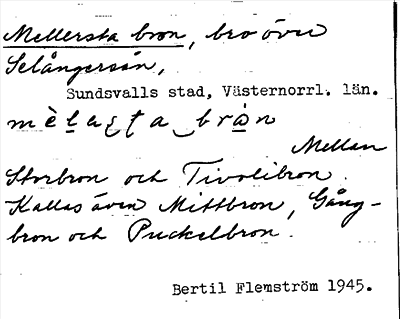 Mellersta bron, bro över
Selångersån,
Sundsvalls stad, Västernorrl. län.
Mellan
Storbron och Tivolibron.
Kallas även Mittbron, Gång-
bron och Puckelbron.
Bertil Flemström 1945.